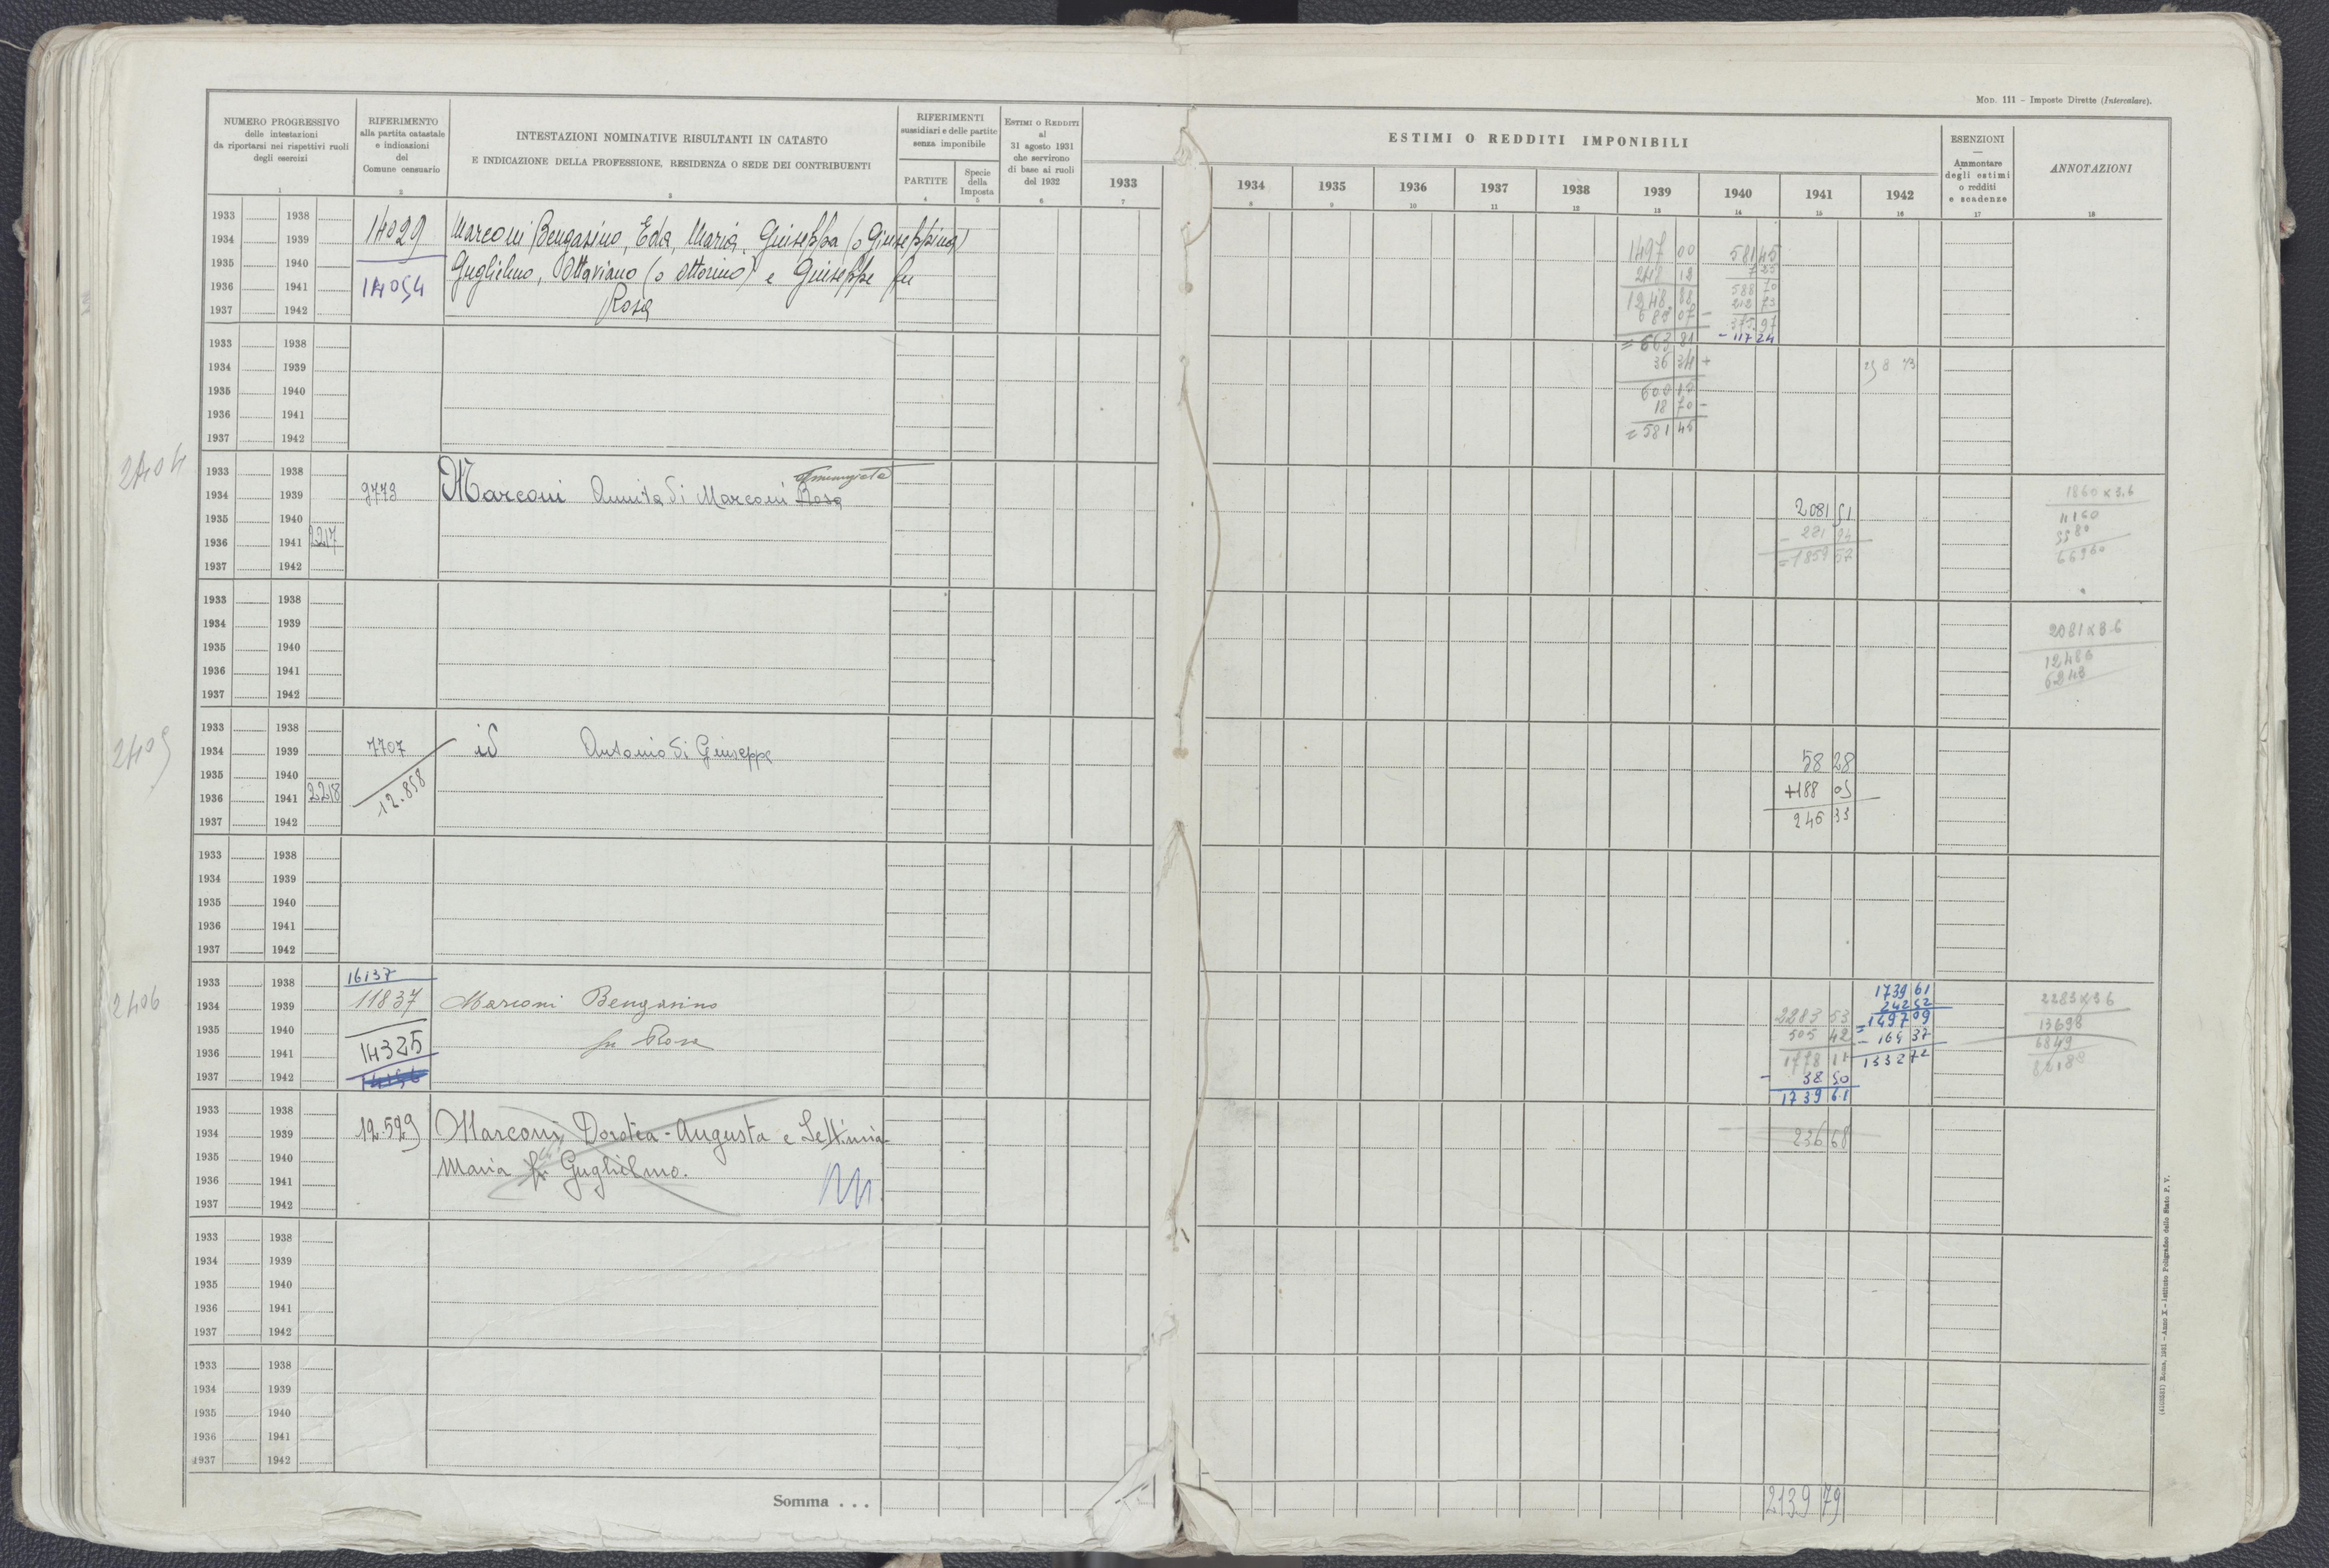 MOD. 111 – Imposte Dirette (Intercalare).
NUMERO PROGRESSIVO
delle intestazioni
da riportarsi nei rispettivi ruoli
degli esercizi
1
RIFERIMENTO
alla partita catastale
e indicazioni
del
Comune censuario
2
INTESTAZIONI NOMINATIVE RISULTANTI IN CATASTO
E INDICAZIONE DELLA PROFESSIONE, RESIDENZA O SEDE DEI CONTRIBUENTI
3
RIFERIMENTI
sussidiari e delle partite
senza imponibile
PARTITE
4
Specie
della
Imposta
5
ESTIMI O REDDITI
al
31 agosto 1931
che servirono
di base ai ruoli
del 1932
6
ESTIMI O REDDITI IMPONIBILI
1933 1934 1935 1936 1937 1938 1939 1940 1941 1942
7 8 9 10 11 12 13 14 15 16
ESENZIONI
—
Ammontare
degli estimi
o redditi
e scadenze
17
ANNOTAZIONI
18
1933 1938 14029 Marconi Bengasino, Eda, Maria, Giuseppa (o Giuseppina)
1934 1939 1497 00 581 45
1935 1940 Guglielmo, Ottaviano (o Ottorino) e Giuseppe fu
248 12
1936 1941 14054 588 70
1248 88 212 73
1937 1942 Rosa
685 07 – 375 97
= 663 81 – 117 24
1933 1938
1934 1939 36 34 +
1935 1940
1936 1941 18 70 –
1937 1942 = 581 45
2404
1933 1938
1934 1939 9773 Marconi Annita di Marconi Rosa
1860 x 3.6
1935 1940 2081 51 11160
1936 1941 2217 – 221 94
= 1859 57 66960
1937 1942
1933 1938
1934 1939 2081 x 3.6
1935 1940
1936 1941 12486
1937 1942 6243
1933 1938
2405
1934 1939 7707 id Antonio di Giuseppe 58 28
1935 1940
1936 1941 2218 12.858 +188 05
1937 1942 246 33
1933 1938
1934 1939
1935 1940
1936 1941
1937 1942
1933 1938 16137 1739 61
2406
1934 1939 11837 Marconi Bengasino 242 52 2283 x 3 6
1935 1940 2283 53 = 1497 09 13698
fu Rosa
1936 1941 14325 505 42 – 164 37 6849
1778 11 1332 72
1937 1942 – 38 50
1739 61
1933 1938
1934 1939 12.529 Marconi Dorotea - Augusta e Settimia 236 68
1935 1940 Maria fu Guglielmo.
1936 1941
1937 1942
1933 1938
1934 1939
1935 1940
1936 1941
1937 1942
1933 1938
1934 1939
1935 1940
1936 1941
1937 1942
Somma . . . 2139 79